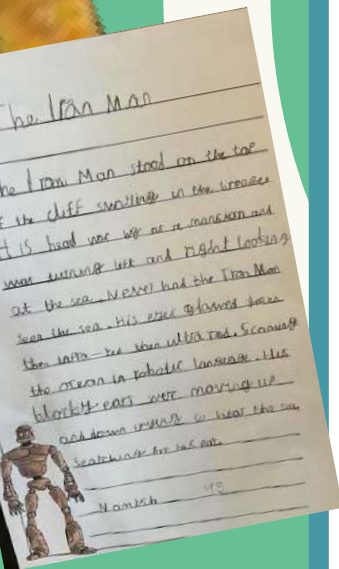 The Iron Man
The Iron Man stood on the top
of the cliff in the
His head was big as a mansion and
was turning left and right looking
at the sea. Never had the Iron Man
seen the sea. His eyes glowed
then infra-red then ultra red. Scanning
the ocean in robotic language. His
blocky ears were moving up
and down trying to hear the sea,
searching for his ear.
Manish